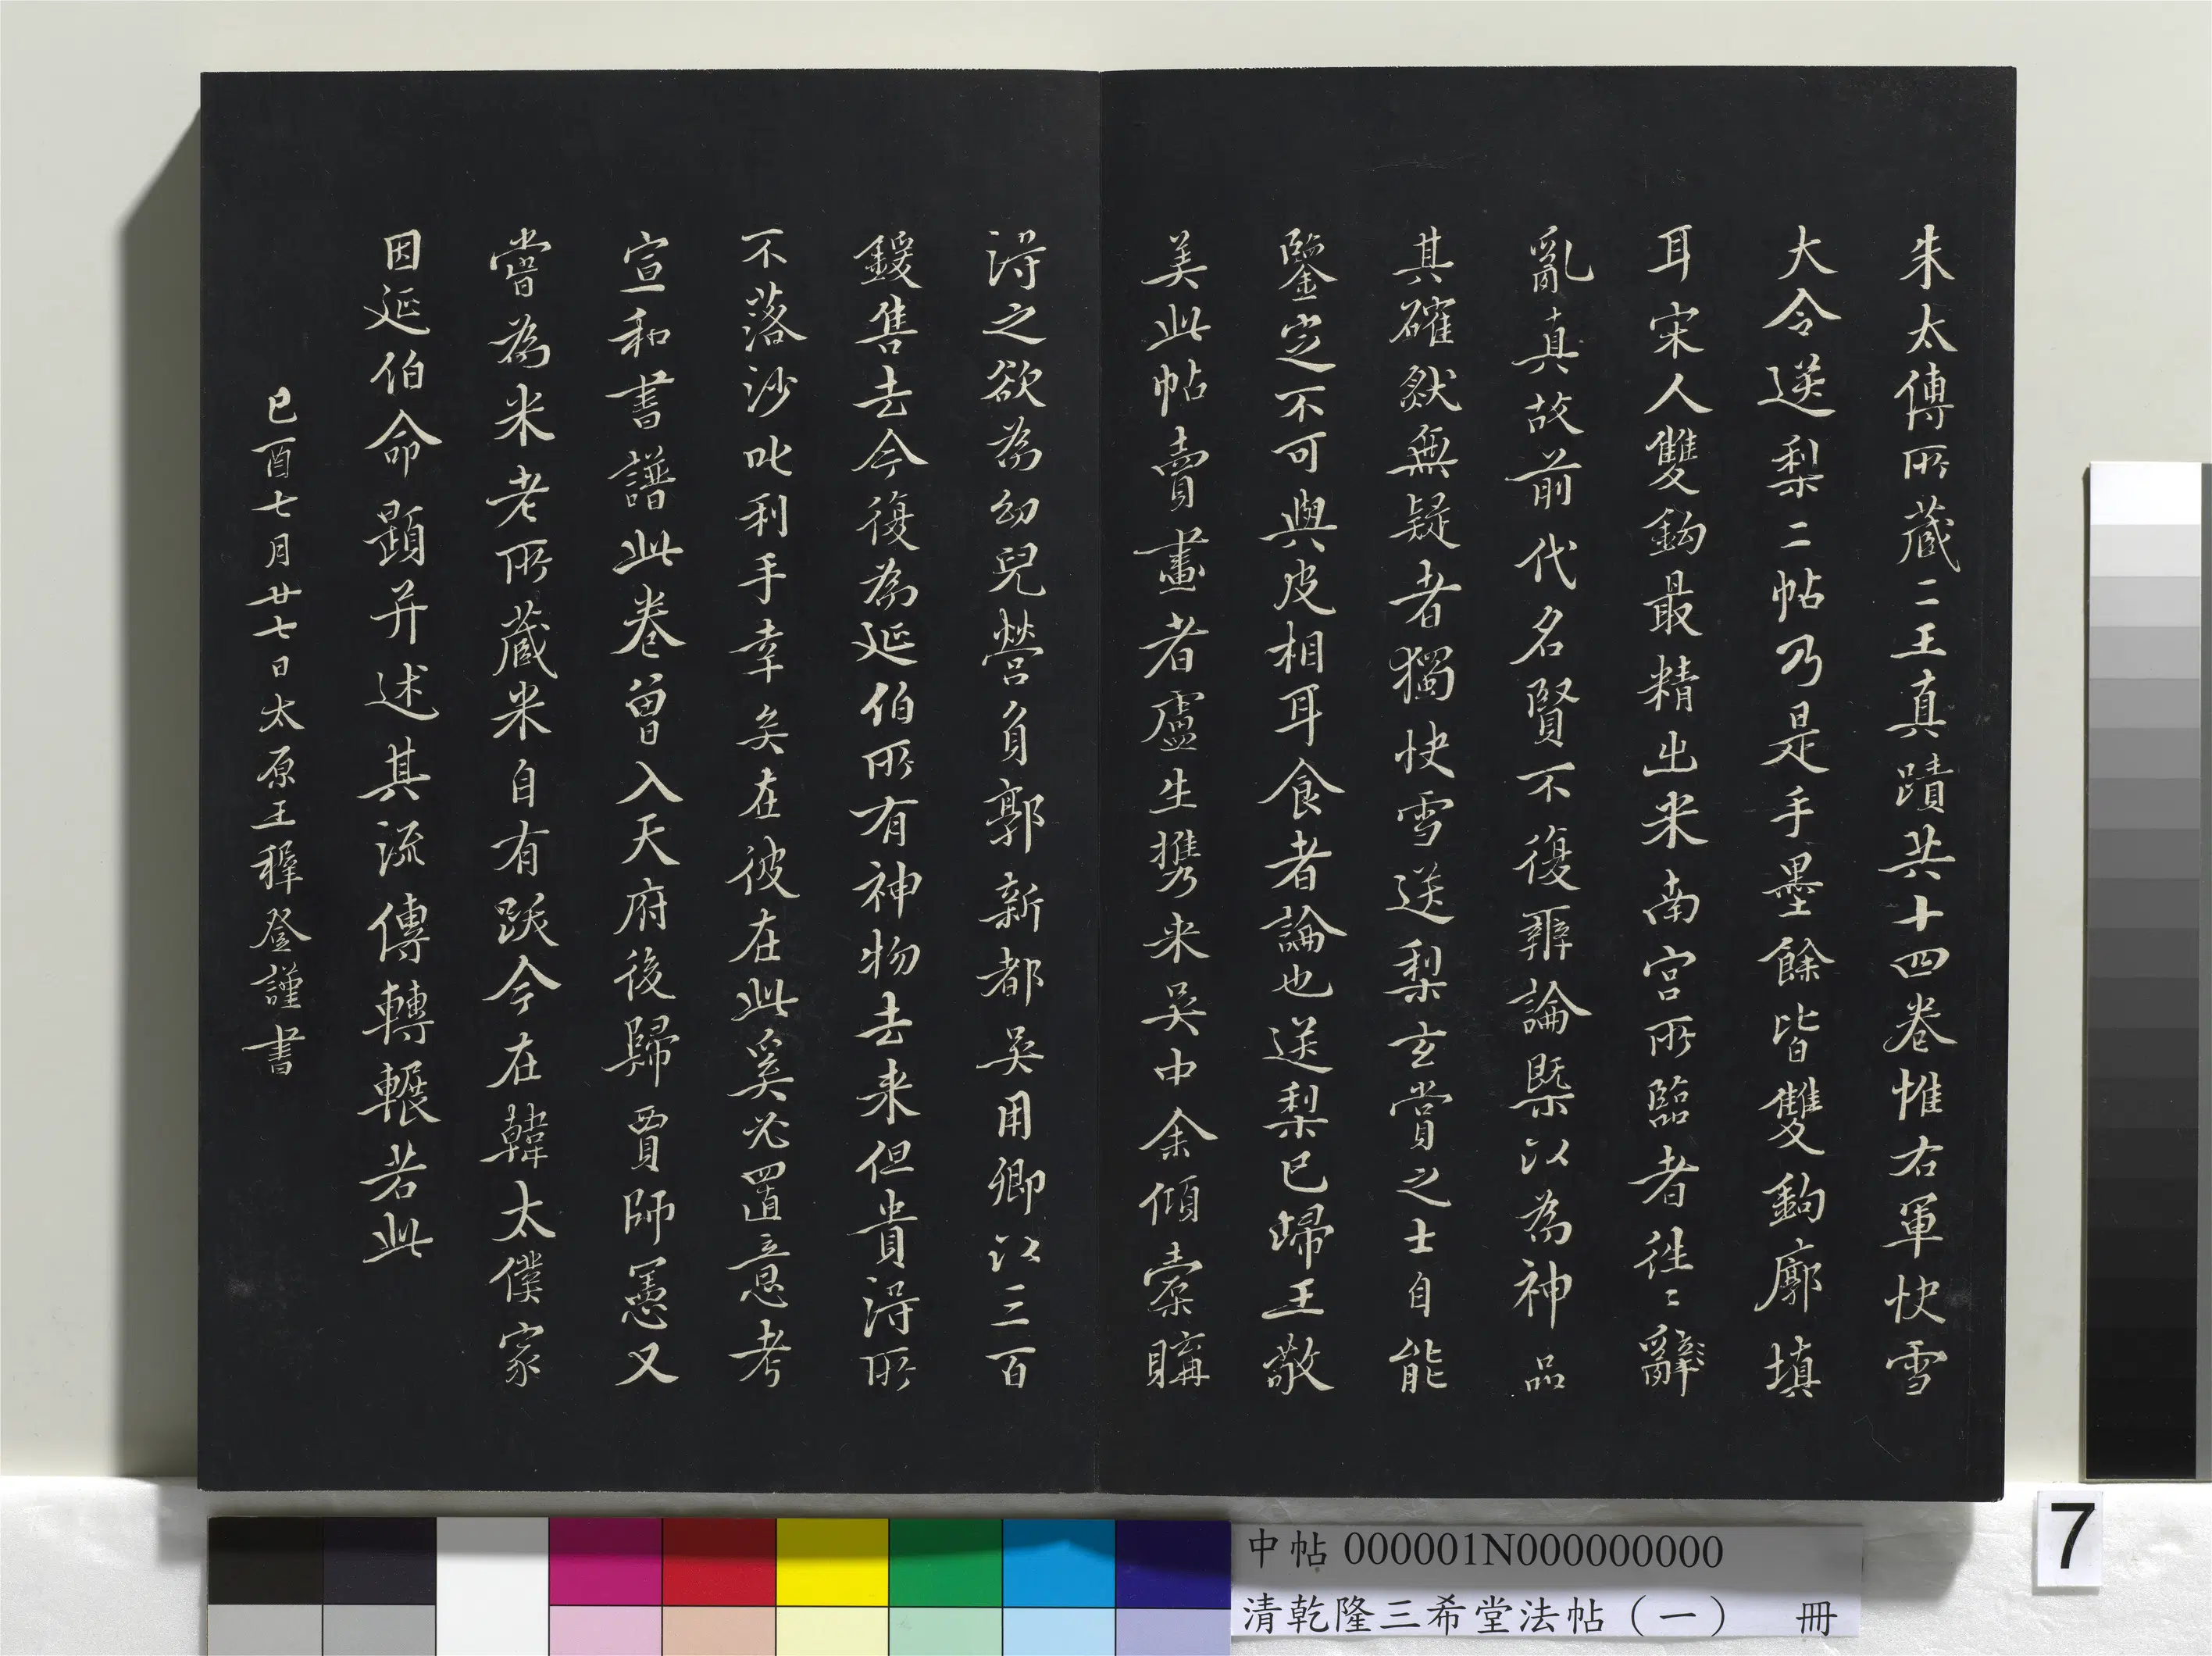 朱太傅所藏二王真蹟共十四卷惟右軍快雪
大令送梨二帖乃是手墨餘皆雙鉤廓填
耳宋人雙鉤最精出米南宮所臨者往〻辭
亂真故前代名賢不復辨論槩以為神品
其確然無疑者獨快雪送梨玄賞之士自能
鑒定不可與皮相耳食者論也送梨已歸王敬
美此帖賣畫者盧生攜来吳中余傾橐購
淂之欲為幼兒營負郭新都吳用卿以三百
鍰售去今復為延伯所有神物去来但貴淂所
不落沙叱利手幸矣在彼在此奚必置意考
宣和書譜此卷曾入天府後歸賈師憲又
嘗為米老所藏米自有跋今在韓太僕家
因延伯命題并述其流傳轉輾若此
己酉七月廿七日太原王穉登謹書
中帖 000001N000000000
清乾隆三希堂法帖（一） 冊
7